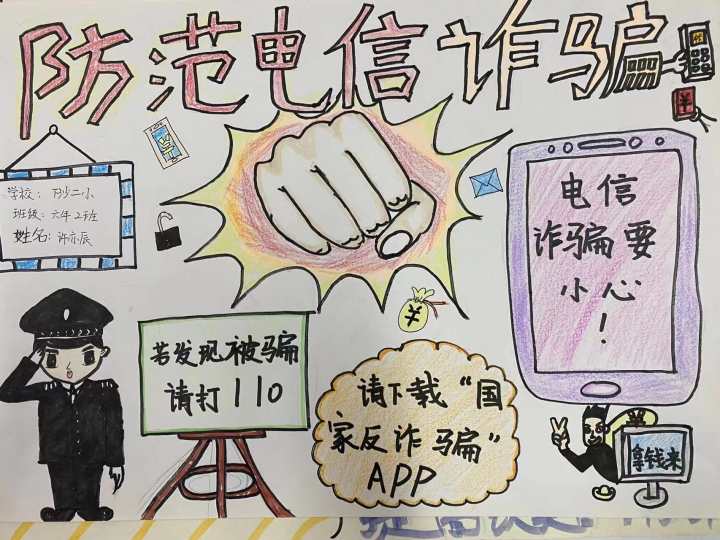 防范电信诈骗
¥
学校：阝少二小
班级：六年2班
姓名：许亦辰
电信
诈骗要
小心
！
¥
若发现被骗
请打110
请下载“国
家反诈骗”
APP
¥
拿钱来